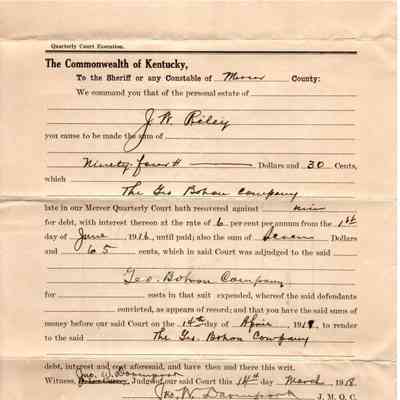 Quarterly Court Execution.
The Commonwealth of Kentucky,
To the Sheriff or any Constable of Mercer County:
We command you that of the personal estate of
J. W. Riley
you cause to be made the sum of
Ninety-four Dollars and 30 Cents,
which
The Geo Bohon Company
late in our Mercer Quarterly Court hath recovered against him
for debt, with interest thereon at the rate of 6 per cent per annum from the 1st
day of June 1916, until paid; also the sum of Seven Dollars
and 65 cents, which in said Court was adjudged to the said
Geo. Bohon Company
for costs in that suit expended, whereof the said defendants
convicted, as appears of record; and that you have the said sums of
money before our said Court on the 14th day of April 191, to render
to the said The Geo. Bohon Company
debt, interest and cost aforesaid, and have then and there this writ.
Jno. W. Davenport
Witness, Judge of our said Court this 14th day March 1918.
Jno. W. Davenport J. M. Q. C.